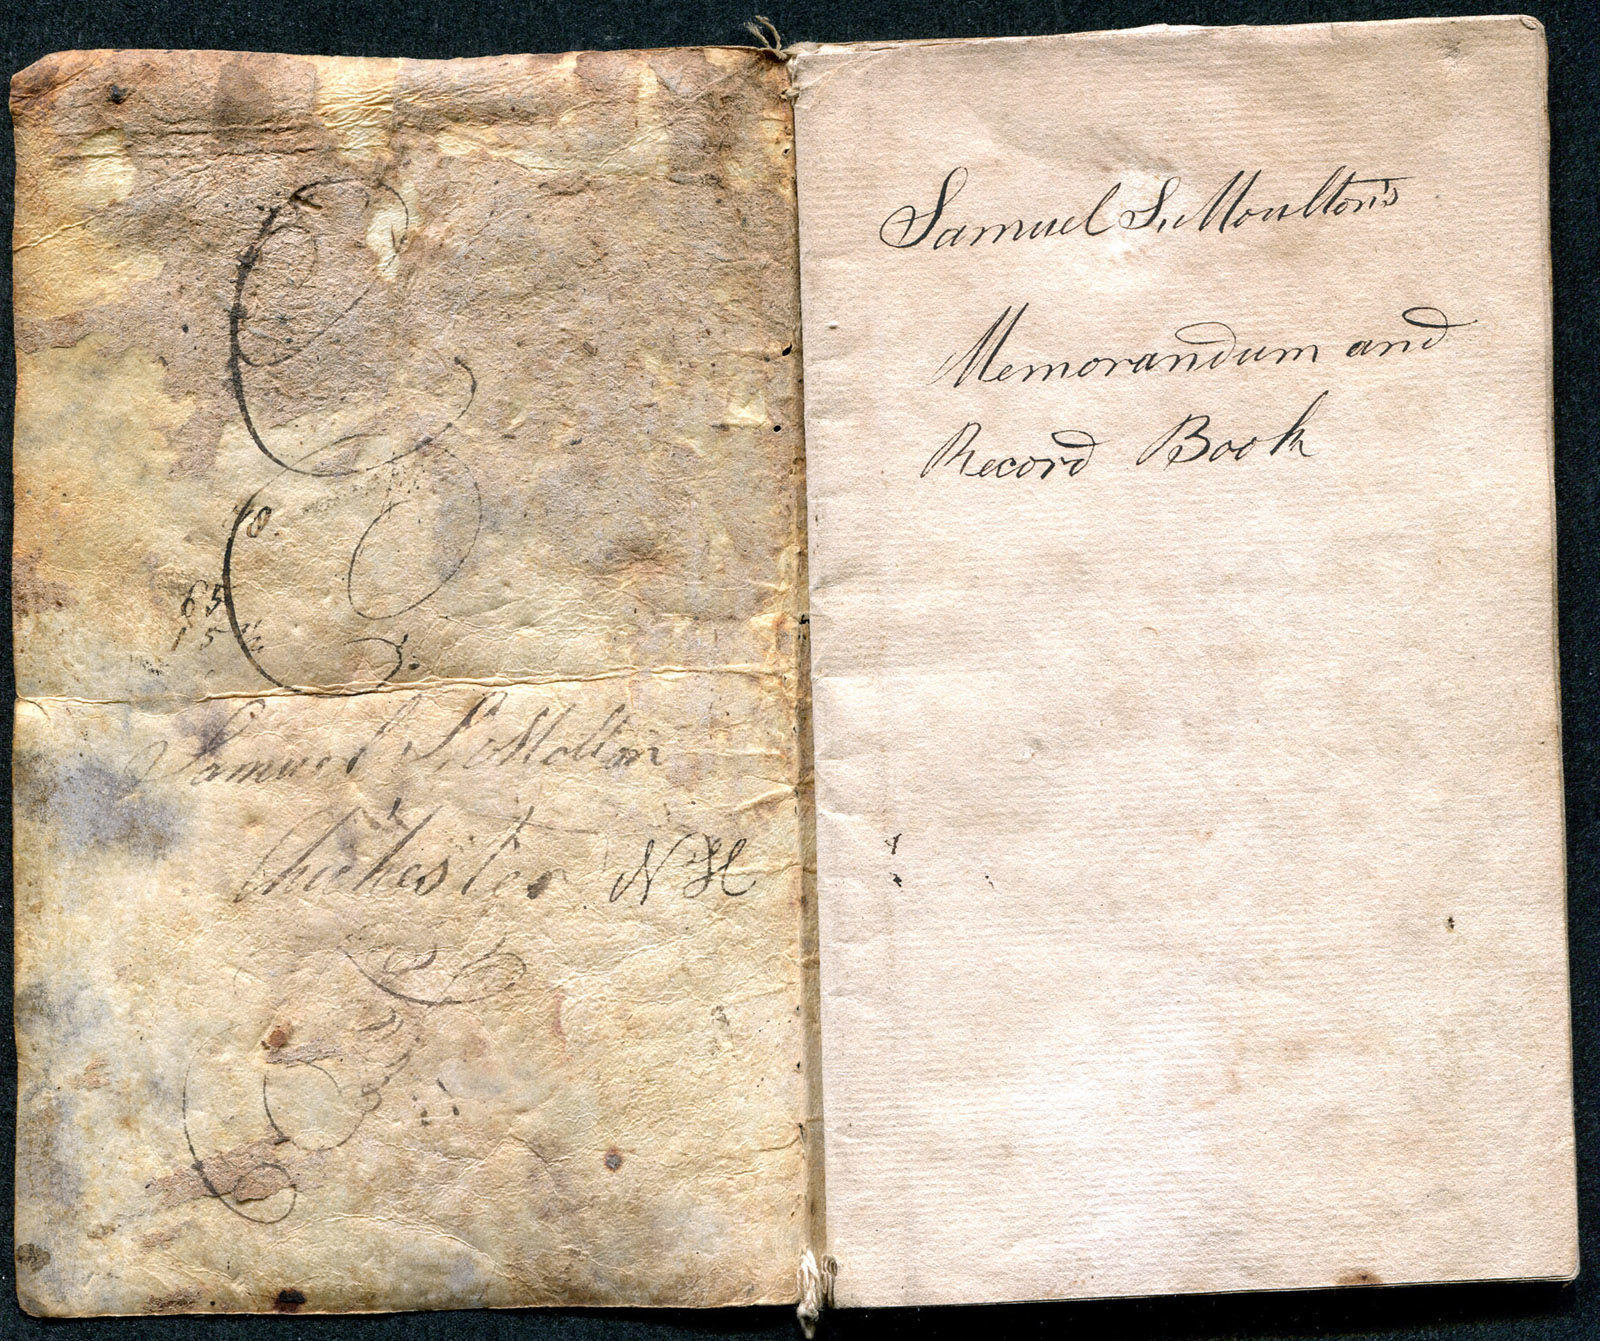 8.
65
15 1/2
Samuel S. Molton
Chichester N H
Samuel S. Moulton's
Memorandum and
Record Book